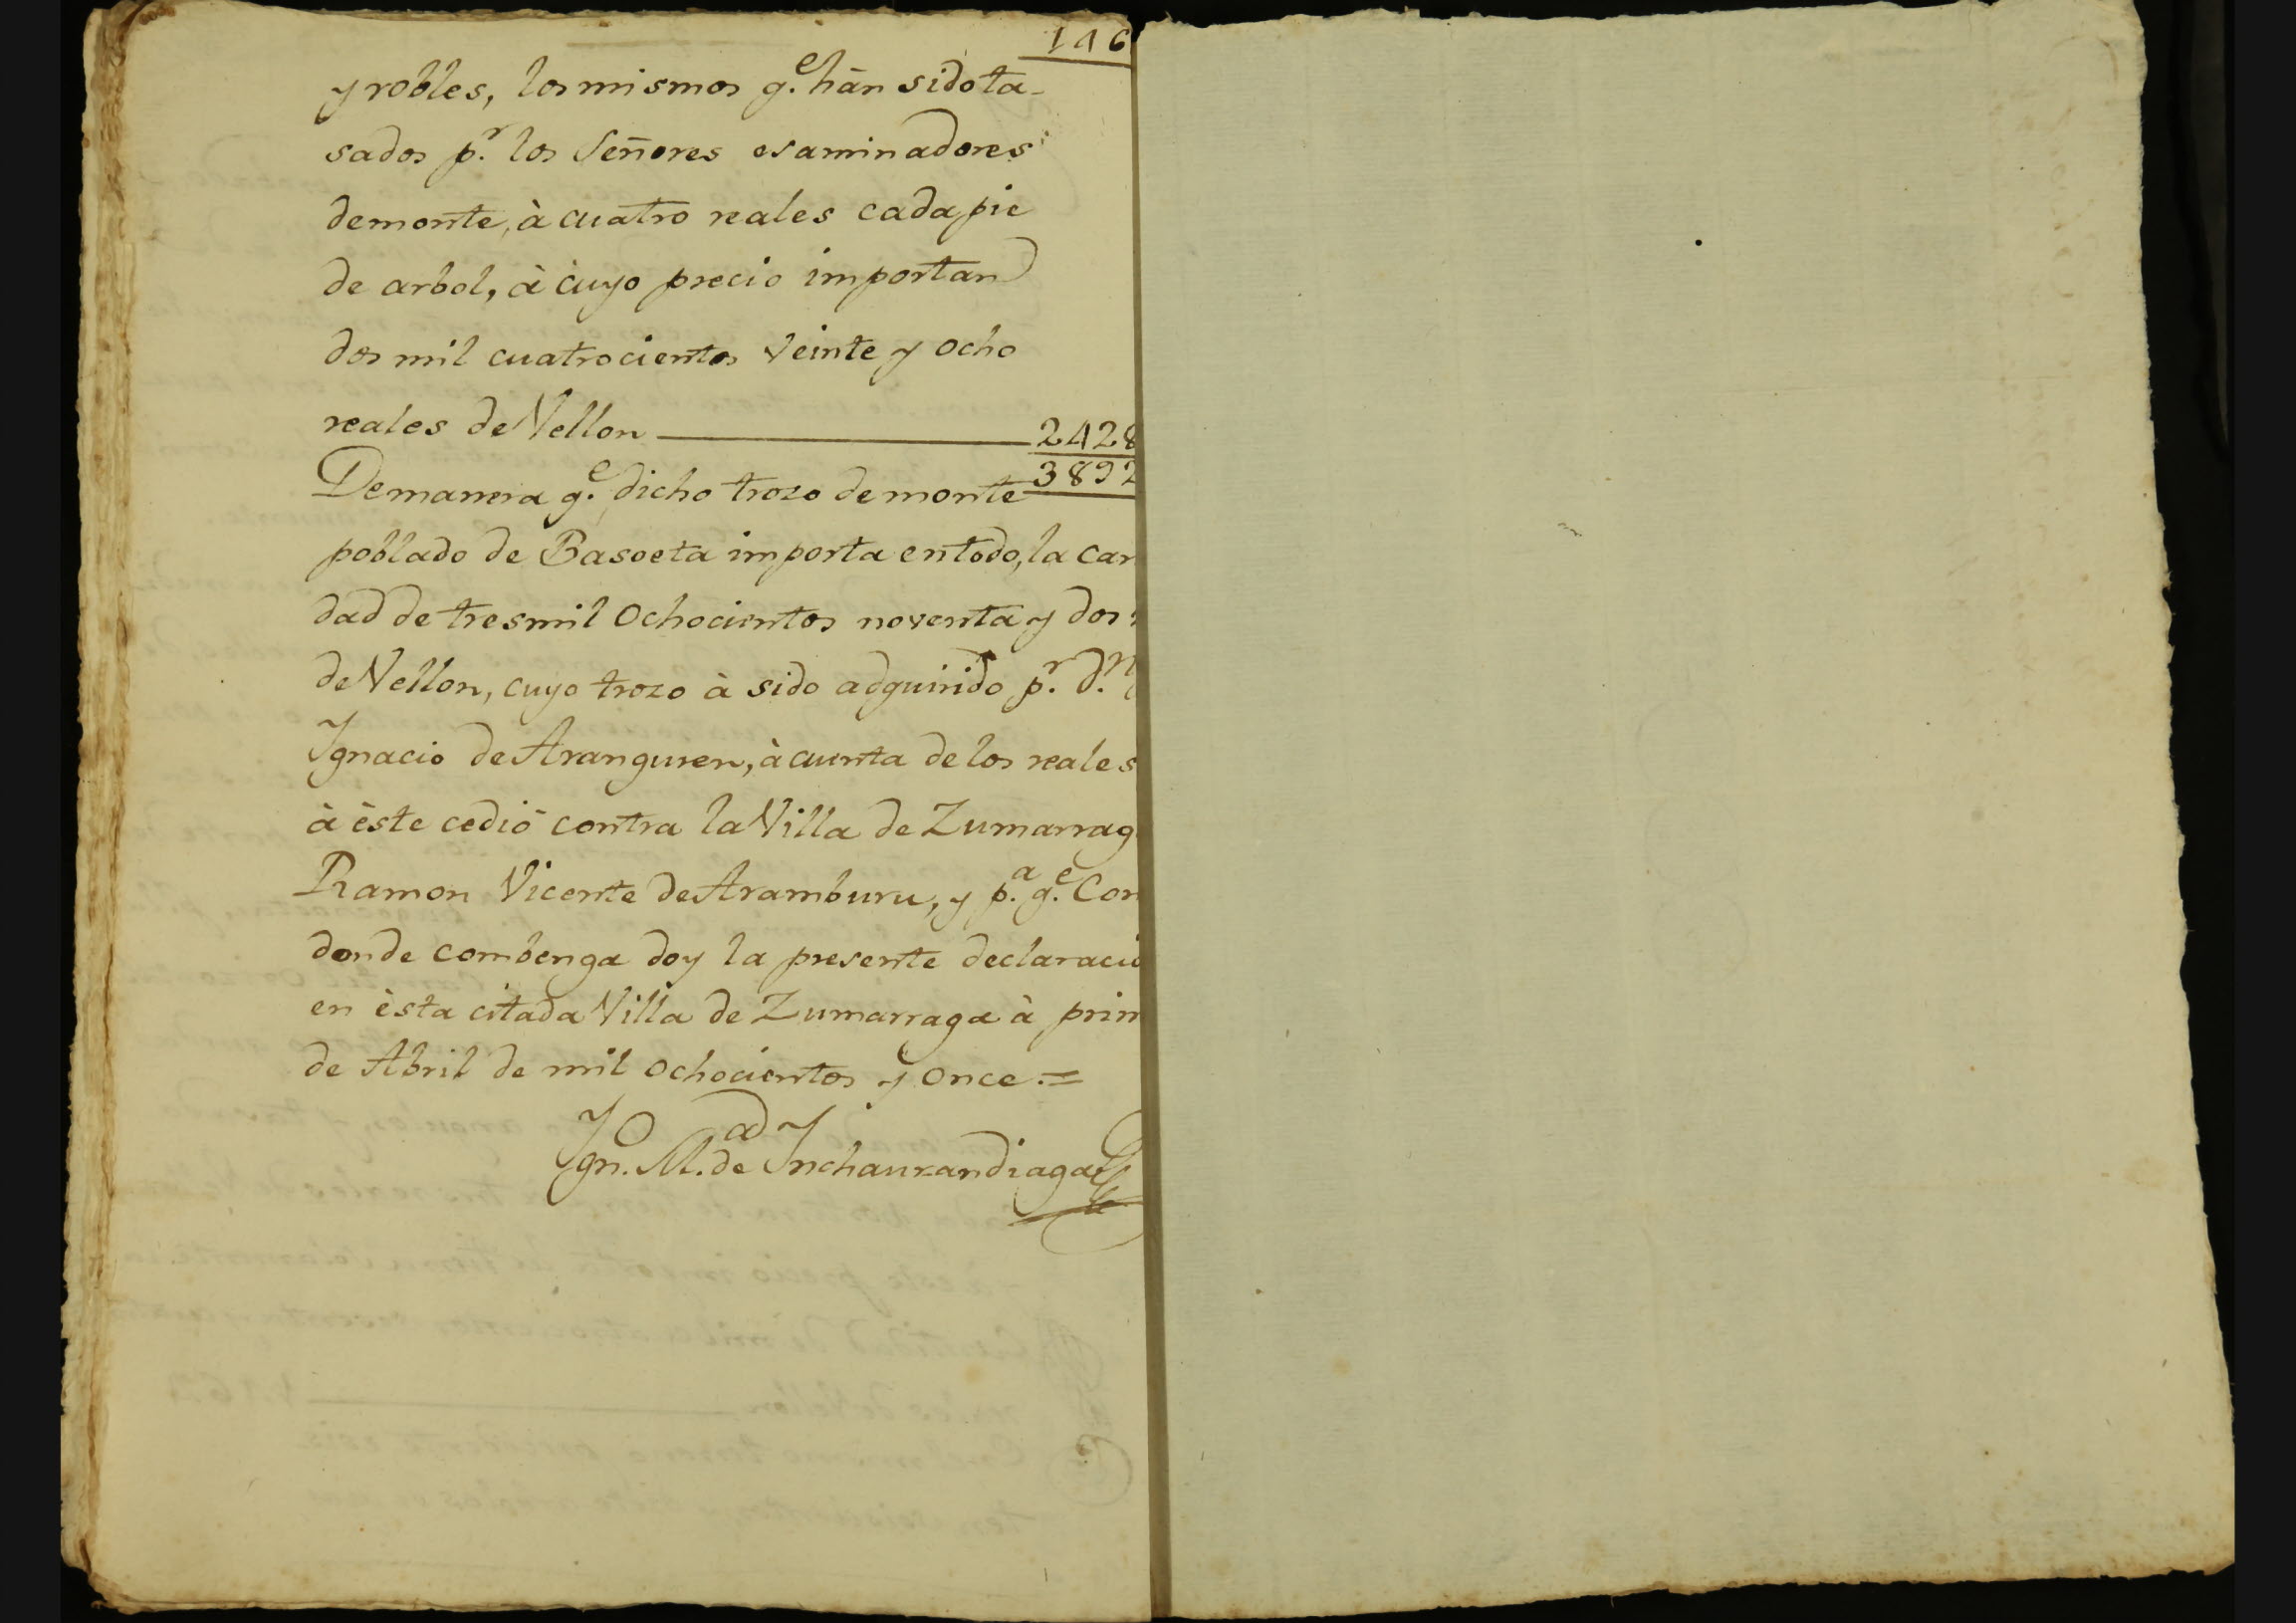 146
y robles, los mismos q.e hān sido ta-
sados p.r los Señores esaminadores
de monte, à cuatro reales cada pie
de arbol, à cuyo precio importan
dos mil cuatrocientos veinte y ocho
reales de Vellon — 2428
3892
De manera q.e dicho trozo de monte
poblado de Basoeta importa en todo, la can
dad de tres mil Ochocientos noventa y dos
de Vellon, cuyo trozo à sido adquirido p.r d.n
Ygnacio de Aranguren, à cuenta de los reales
à èste cediò contra la Villa de Zumarrag
Ramon Vicente de Aramburu, y p.a q.e Con
donde combenga doy la presente declaracio
en èsta citada Villa de Zumarraga à prim
de Abril de mil ochocientos y Once.=
Ygn.o M.a de Ynchaurandiaga